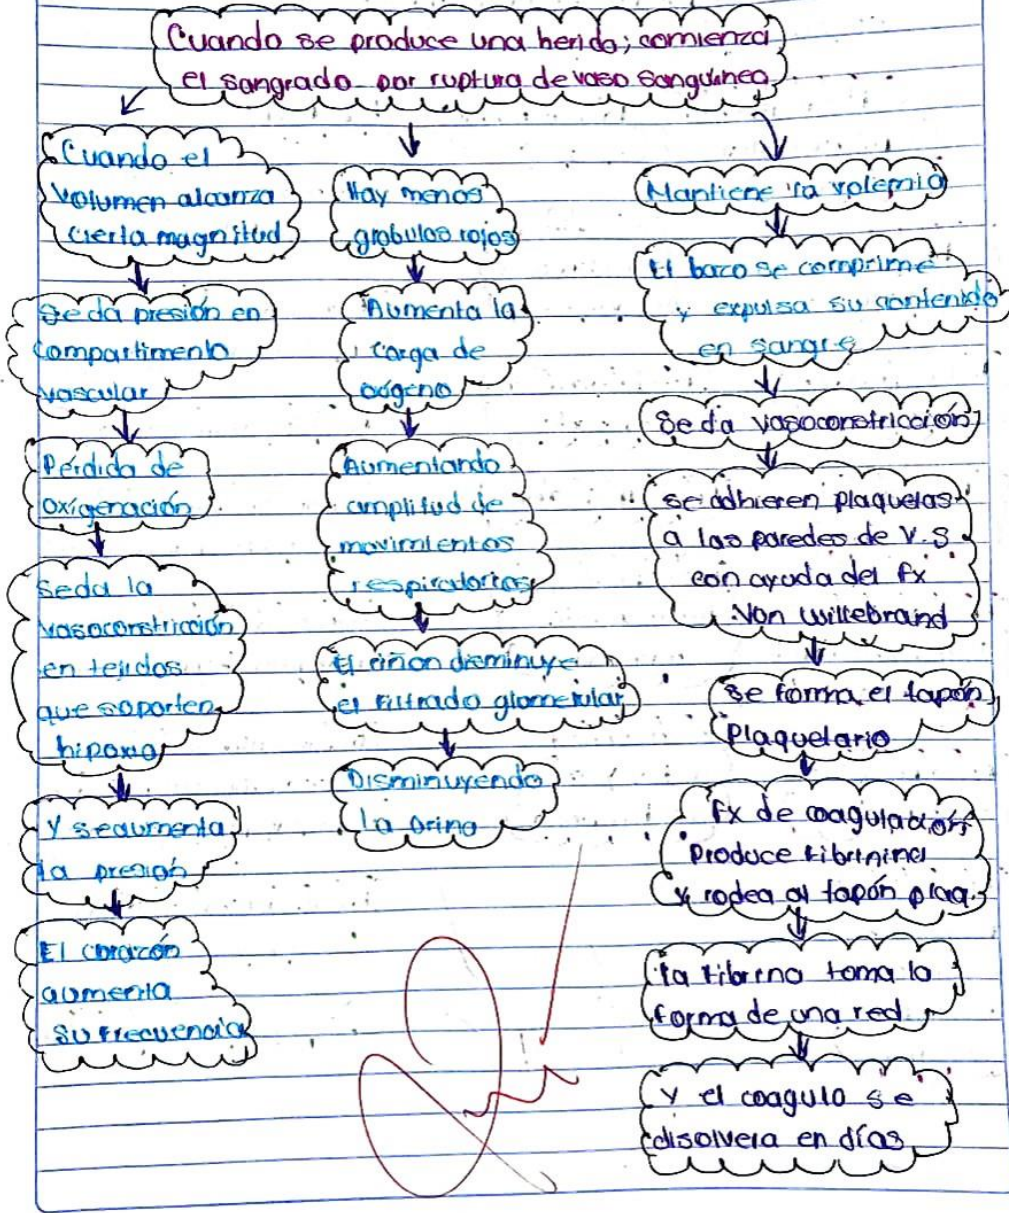 Cuando se produce una herida; comienza
el sangrado por ruptura de vaso sanguineo
Cuando el
volumen alcanza
cierta magnitud
Se da presión en
compartimento
vascular
Perdida de
oxigenación
Se da la
vasoconstricción
en tejidos
que soporten
hipoxia
Y se aumenta
la presión
El corazón
aumenta
su frecuencia
Hay menos
globulos rojos
Aumenta la
carga de
oxigeno
Aumentando
amplitud de
movimientos
respiratorios
El riñon disminuye
el filtrado glomerular
Disminuyendo
la orina
Mantiene la volemia
El bazo se comprime
y expulsa su contenido
en sangre
Se da vasoconstricción
Se adhieren plaquetas
a las paredes de V.S
con ayuda del fx
Von willebrand
Se forma el tapón
plaquetario
fx de coagulación
produce fibrinina
y rodea al tapón plaq.
la fibrina toma la
forma de una red
y el coagulo se
disolvera en días